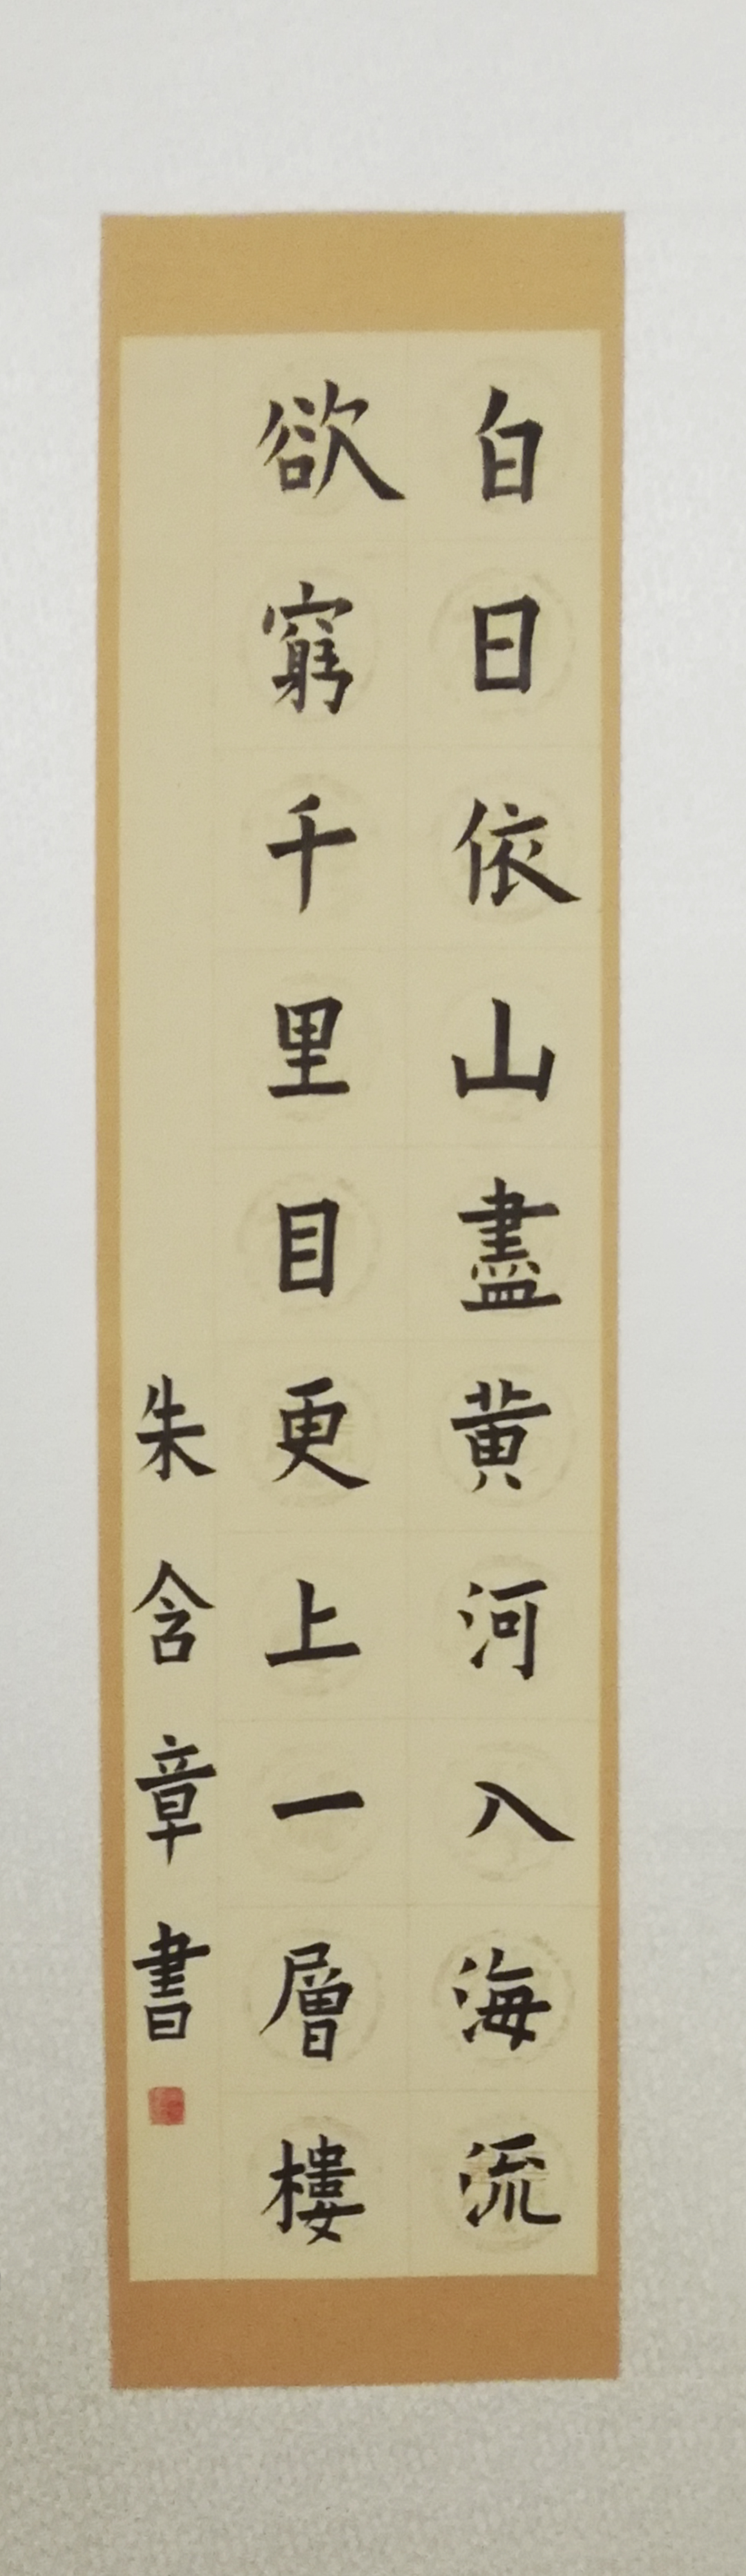 白日依山盡黄河入海流
欲窮千里目更上一層樓
朱含章書